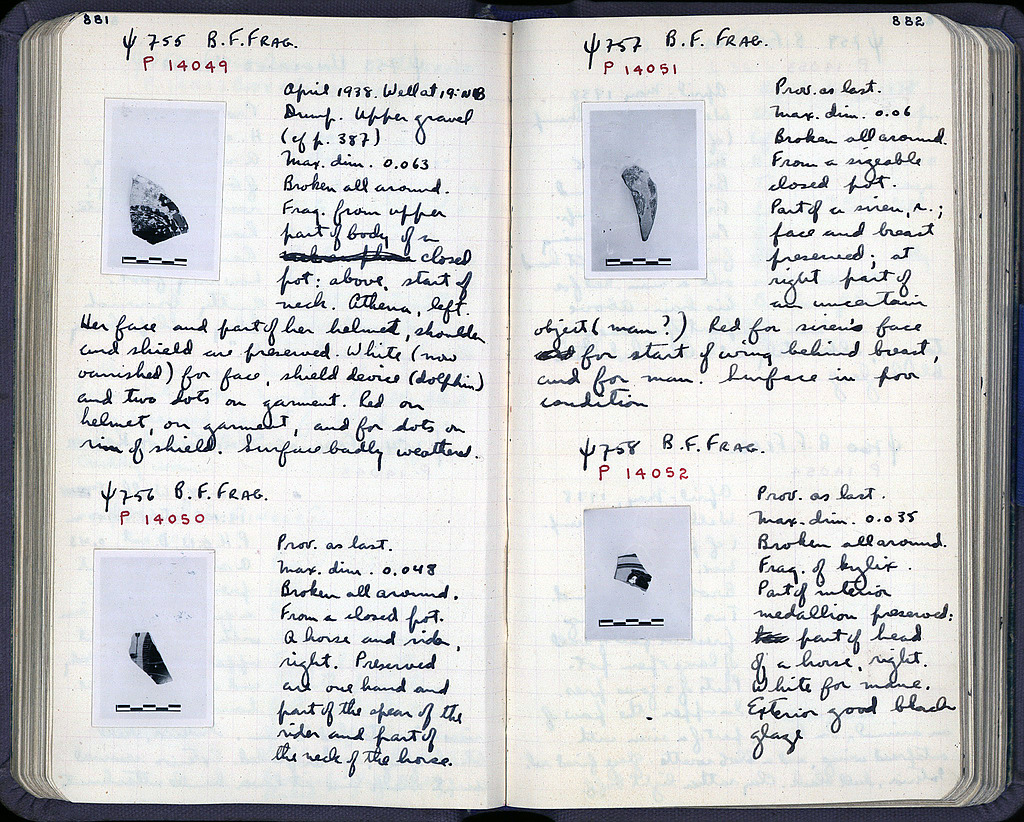 881
ψ 755 B.F. FRAG.
P 14049
April 1938. Well at 19:ΝΒ
Dump. Upper gravel
(cf p. 387)
Max. dim. 0.063
Broken all around.
Frag. from upper
part of body of a
closed
pot: above, start of
neck. Athena, left.
Her face and part of her helmet, shoulder
and shield are preserved. White (now
vanished) for face, shield device (dolphin)
and two dots on garment. Red on
helmet, on garment, and for dots on
rim of shield. Surface badly weathered.
ψ 756 B.F. FRAG.
P 14050
Prov. as last.
Max. dim. 0.048
Broken all around.
From a closed pot.
A horse and rider,
right. Preserved
are one hand and
part of the spear of the
rider and part of
the neck of the horse.
882
ψ 757 B.F. FRAG.
P 14051
Prov. as last.
Max. dim. 0.06
Broken all around.
From a sizeable
closed pot.
Part of a siren, r.;
face and breast
preserved; at
right part of
an uncertain
object (man?) Red for siren's face
for start of wing behind breast,
and for man. Surface in poor
condition
ψ 758 B.F. FRAG.
P 14052
Prov. as last.
Max. dim. 0.035
Broken all around.
Frag. of kylix.
Part of interior
medallion preserved:
part of head
of a horse, right.
White for mane.
Exterior good black
glaze